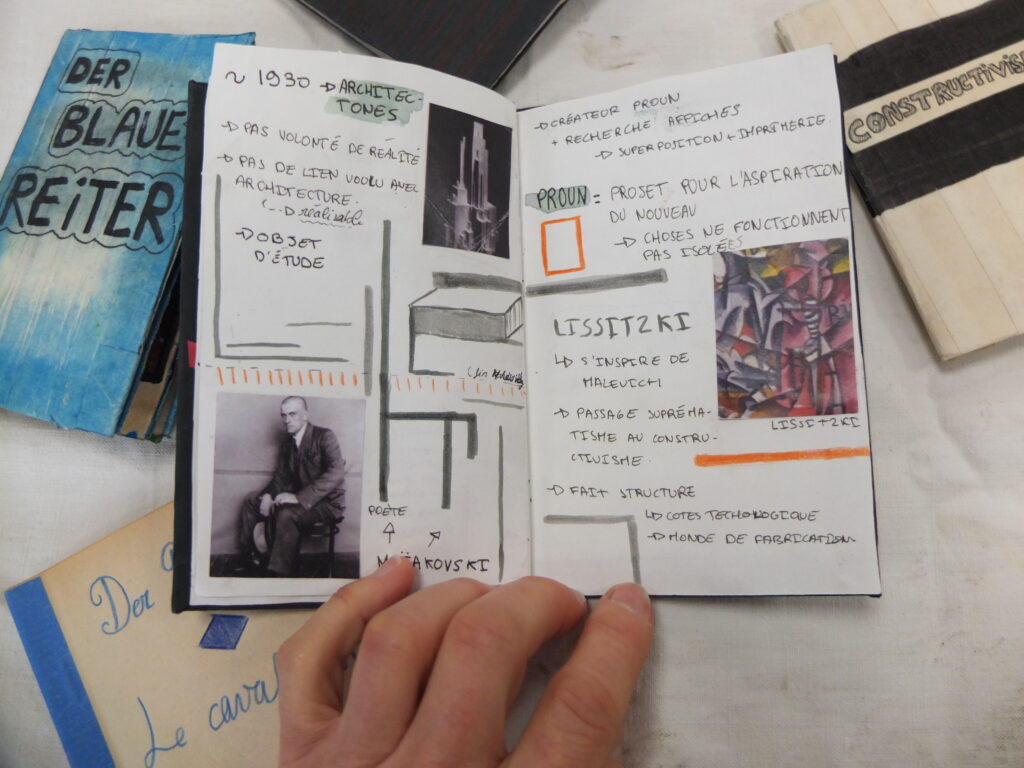 DER
BLAUE
REITER
~ 1930 → ARCHITEC-
TONES
→ PAS VOLONTÉ DE REALITÉ
→ PAS DE LIEN VOULU AVEC
ARCHITECTURE.
(--→ réalisable
→ OBJET
D'ÉTUDE
POÈTE
MAÏAKOVSKI
→ CRÉATEUR PROUN
+ RECHERCHE AFFICHES
→ SUPERPOSITION + IMPRIMERIE.
PROUN = PROJET POUR L'ASPIRATION
DU NOUVEAU
→ CHOSES NE FONCTIONNENT
PAS ISOLÉES
LISSITZKI
↳ S'INSPIRE DE
MALEVICH
→ PASSAGE SUPRÉMA-
TISME AU CONSTRU-
CTIVISME.
LISSITZKI
→ FAIT STRUCTURE
↳ COTES TECHOLOGIQUE
→ MONDE DE FABRICATION
CONSTRUCTIVIS
Der
Le caval